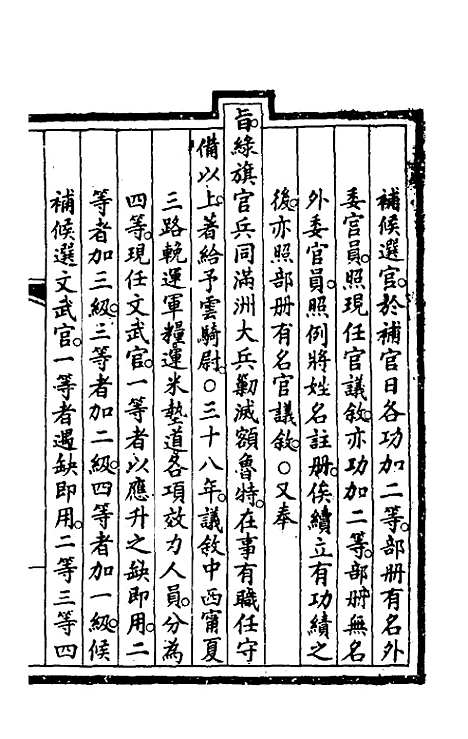 補候選官。於補官日各功加二等。部册有名外
委官員。照現任官議敘。亦功加二等。部册無名
外委官員。照例將姓名註册。俟續立有功績之
後。亦照部册有名官議敘。○又奉
旨。綠旗官兵同滿洲大兵勦滅額魯特。在事有職任守
備以上。著給予雲騎尉。○三十八年。議敘中西甯夏
三路輓運軍糧運米墊道各項效力人員。分為
四等。現任文武官。一等者以應升之缺即用。二
等者加三級。三等者加二級。四等者加一級。候
補候選文武官。一等者遇缺即用。二等三等四